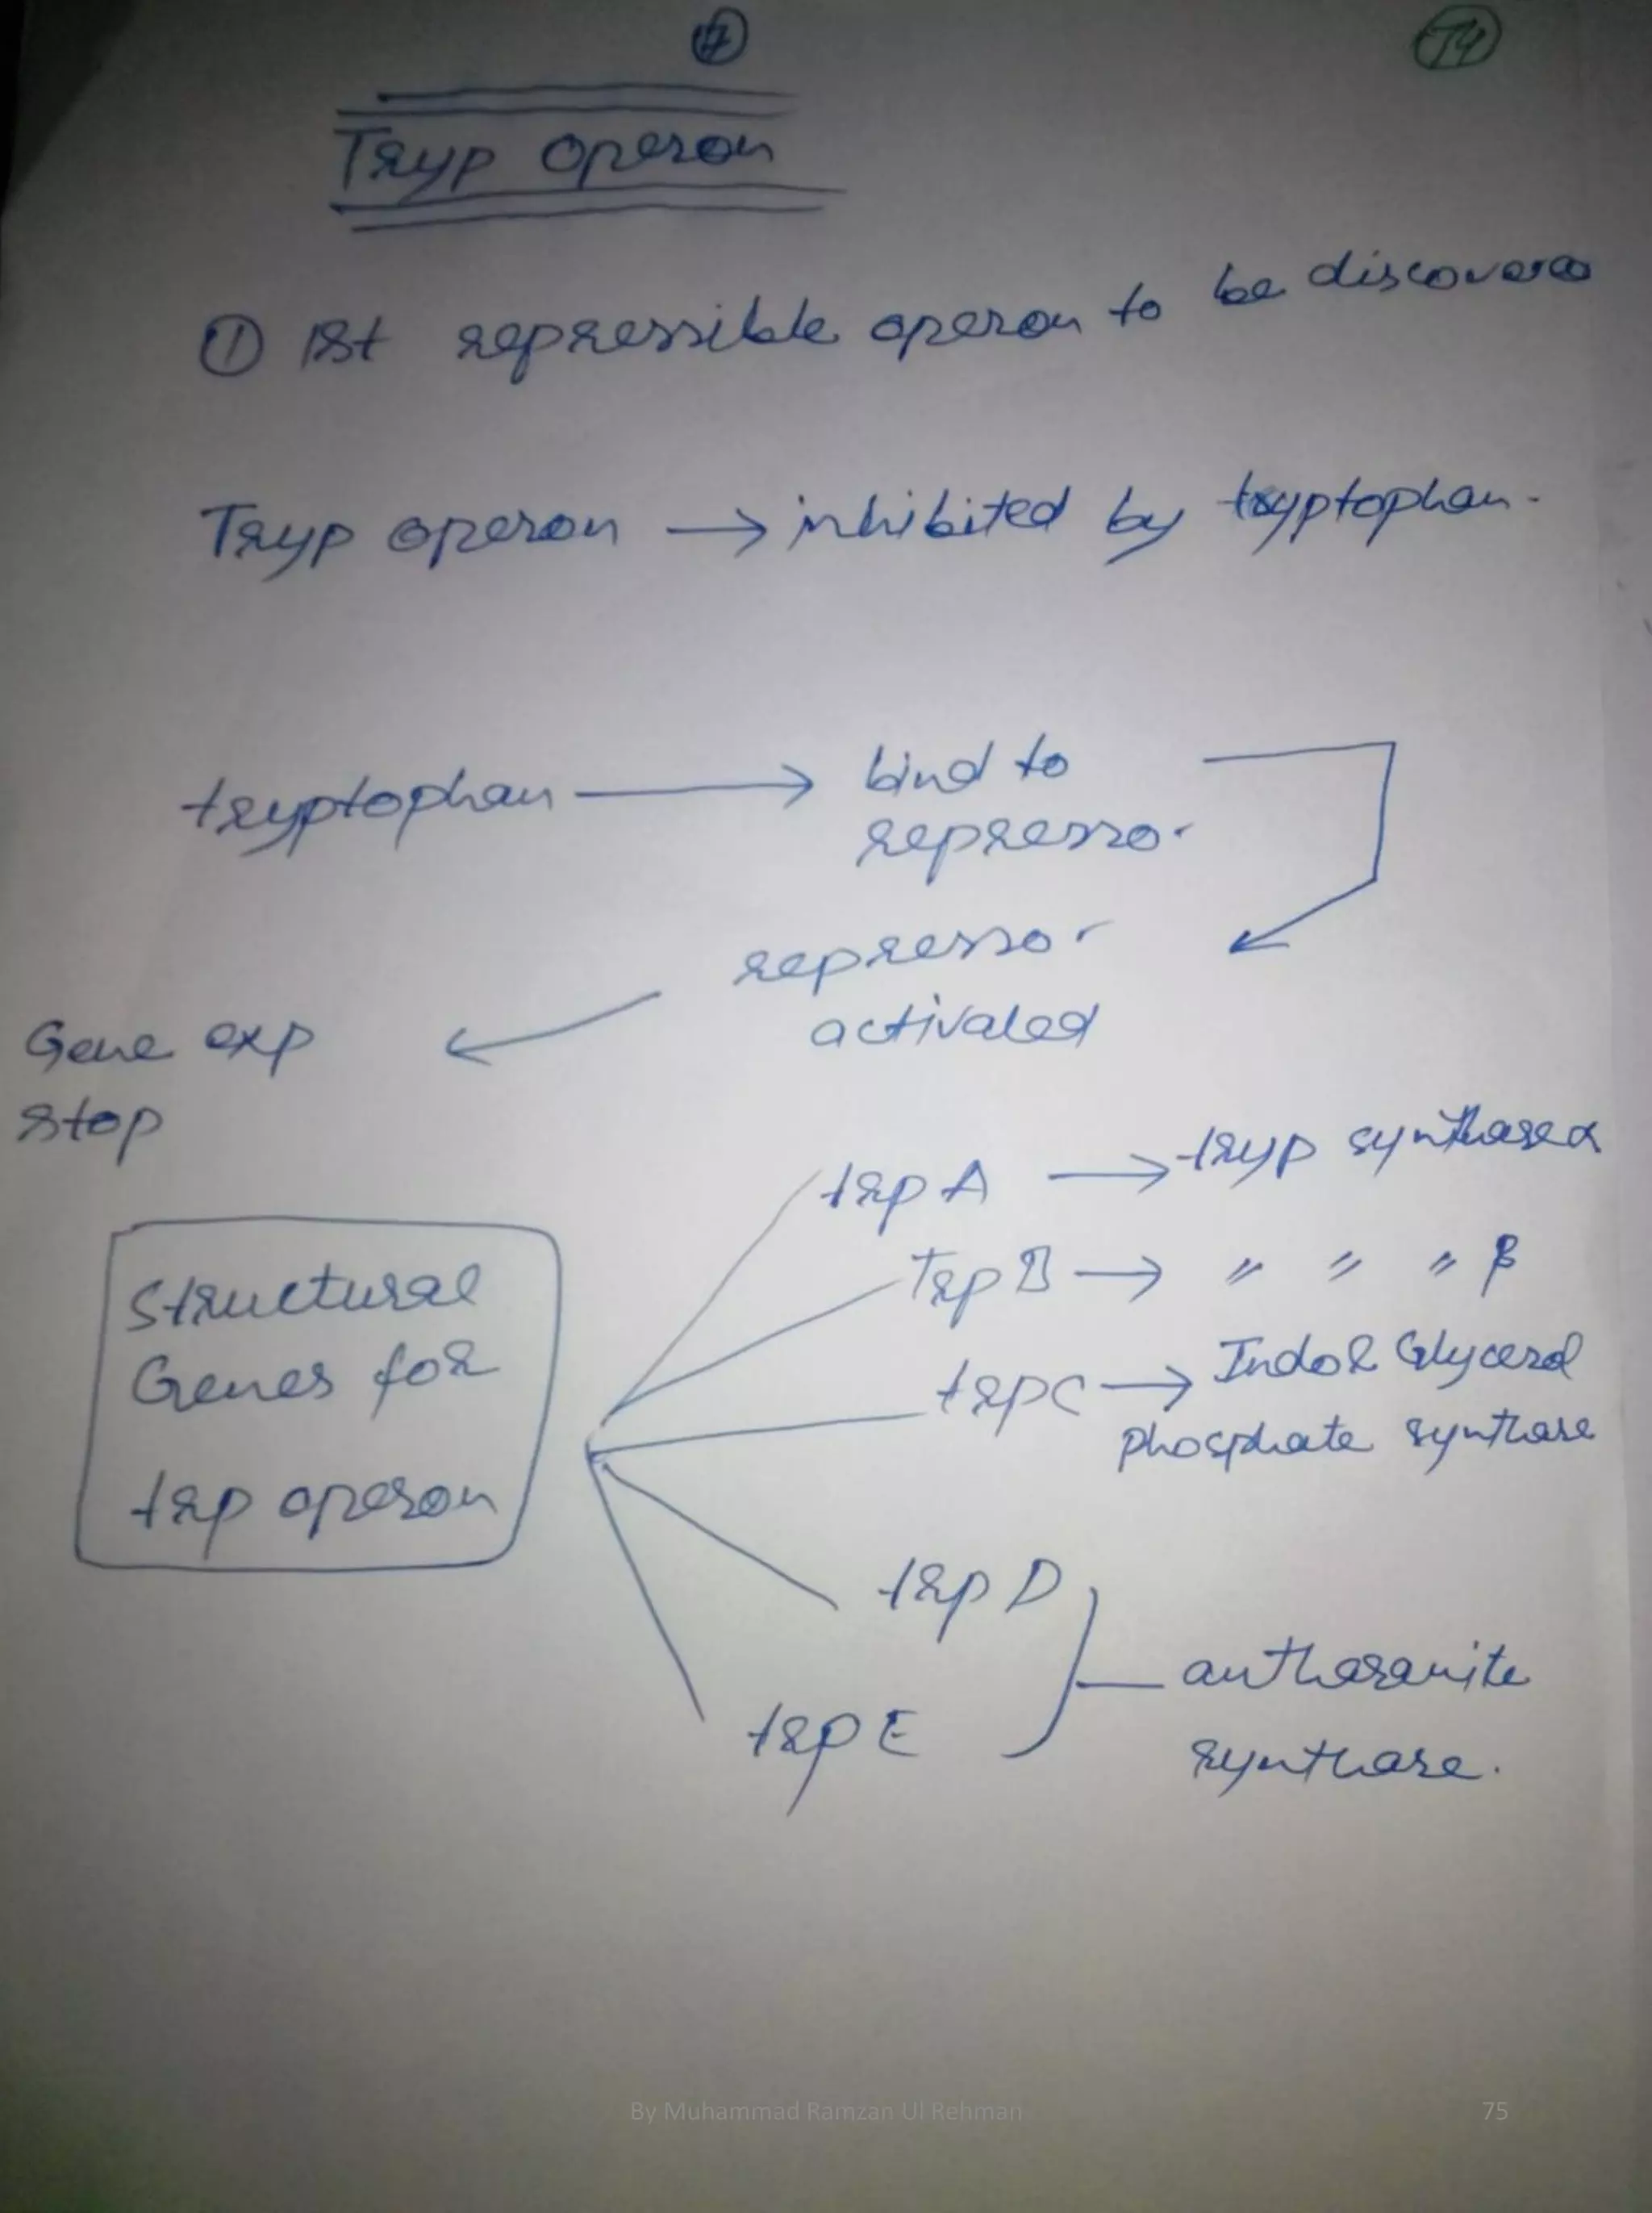 7
74
Tryp operon
① 1st repressible operon to be discovered
Tryp operon → inhibited by tryptophan.
tryptophan → bind to
repressor
repressor
activated
Gene exp
stop
trp A → tryp synthase α
Trp B → " " " β
trp C → Indol Glycerol
phosphate synthase
Structural
Genes for
trp operon
trp D
trp E
antharanite
synthase.
By Muhammad Ramzan Ul Rehman
75